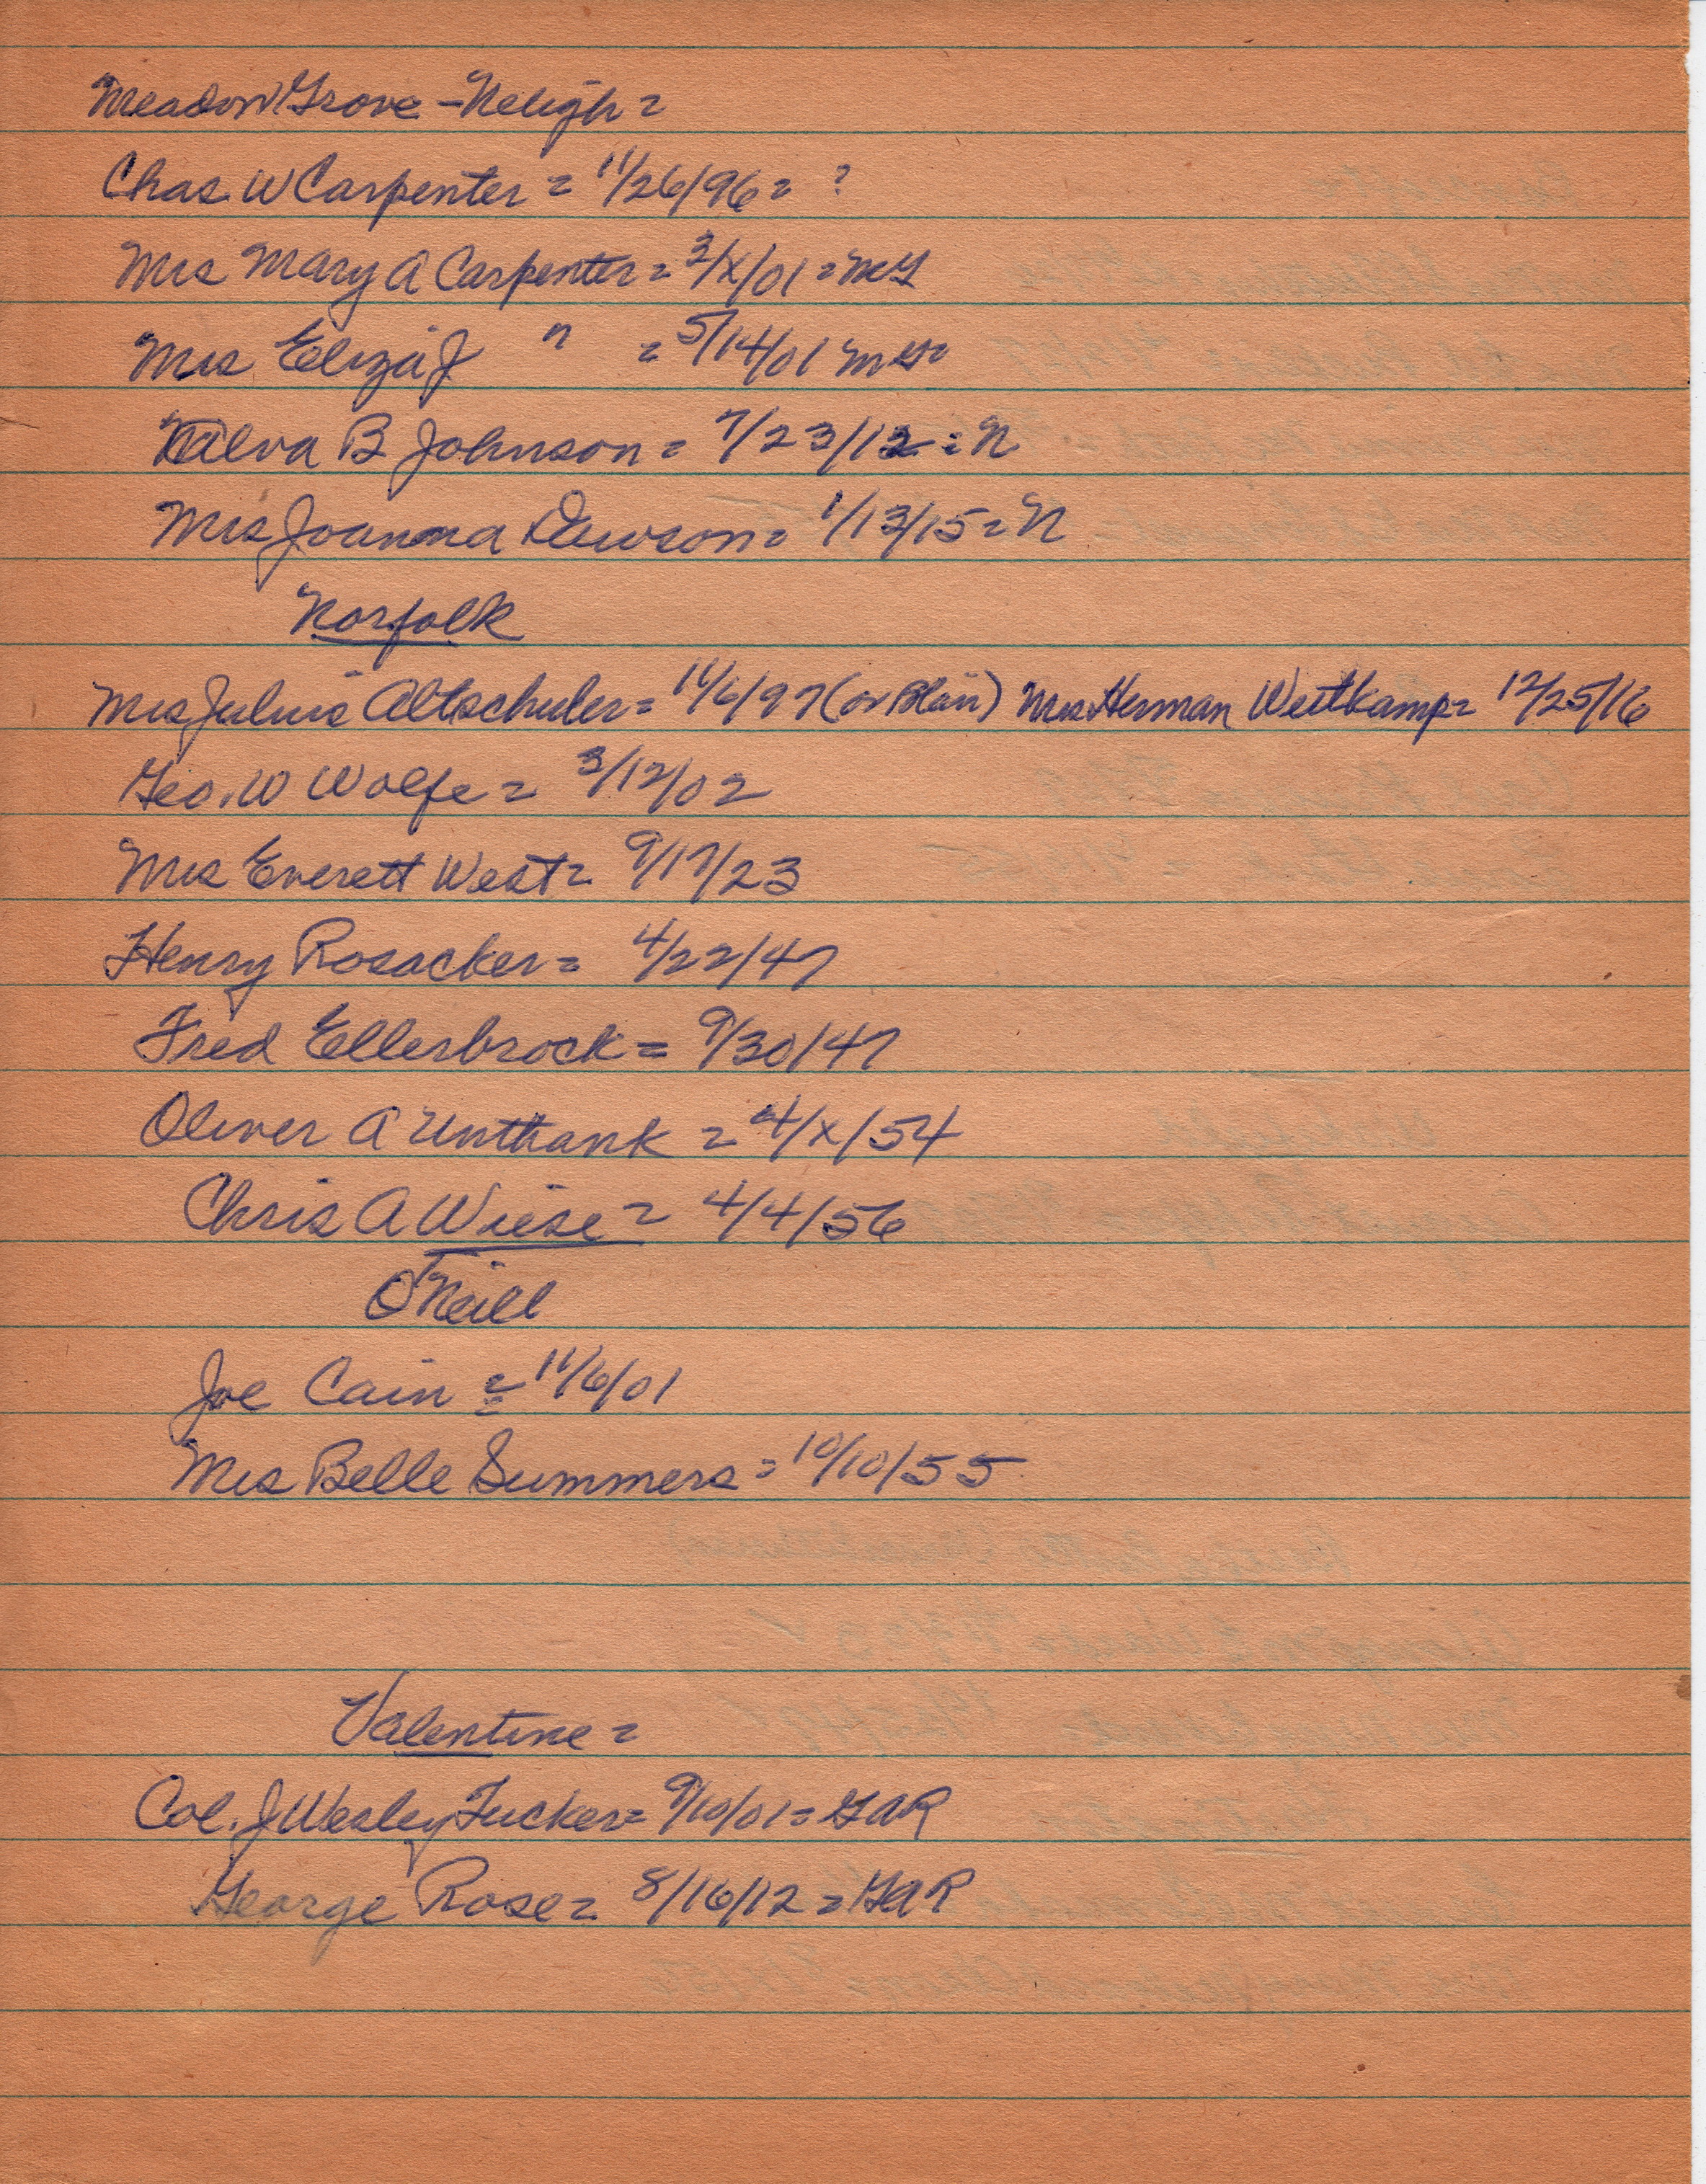 Meadow Grove - Neligh =
Chas. W Carpenter = 11/26/96 = ?
Mrs Mary A Carpenter = 3/X/01 = MG
Mrs Eliza J " = 5/14/01 MG =
Alva B Johnson = 7/23/12 = N
Mrs Joanna Dawson = 1/13/15 = N
Norfolk
Mrs Julius Altschuler = 11/6/97 (or Blair) Mrs Herman Weitkamp = 12/25/16
Geo. W Wolfe = 3/12/02
Mrs Everett West = 9/17/23
Henry Rosacker = 4/22/47
Fred Ellerbrock = 9/30/47
Oliver A Unthank = 4/X/54
Chris A Wiese = 4/4/56
O'Neill
Joe Cain = 11/6/01
Mrs Belle Summers = 10/10/55
Valentine =
Col. J Wesley Tucker = 9/10/01 = GAR
George Rose = 8/16/12 = GAR